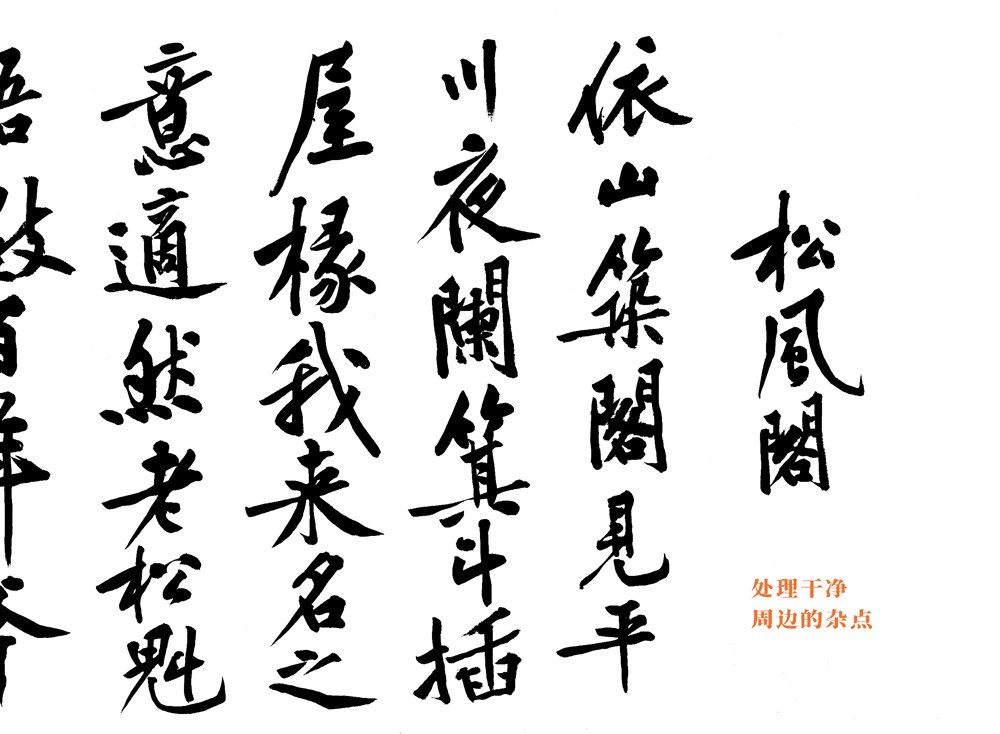 松風閣
依山築閣見平
川夜闌箕斗插
屋椽我来名之
意適然老松魁
梧數百年
处理干净
周边的杂点